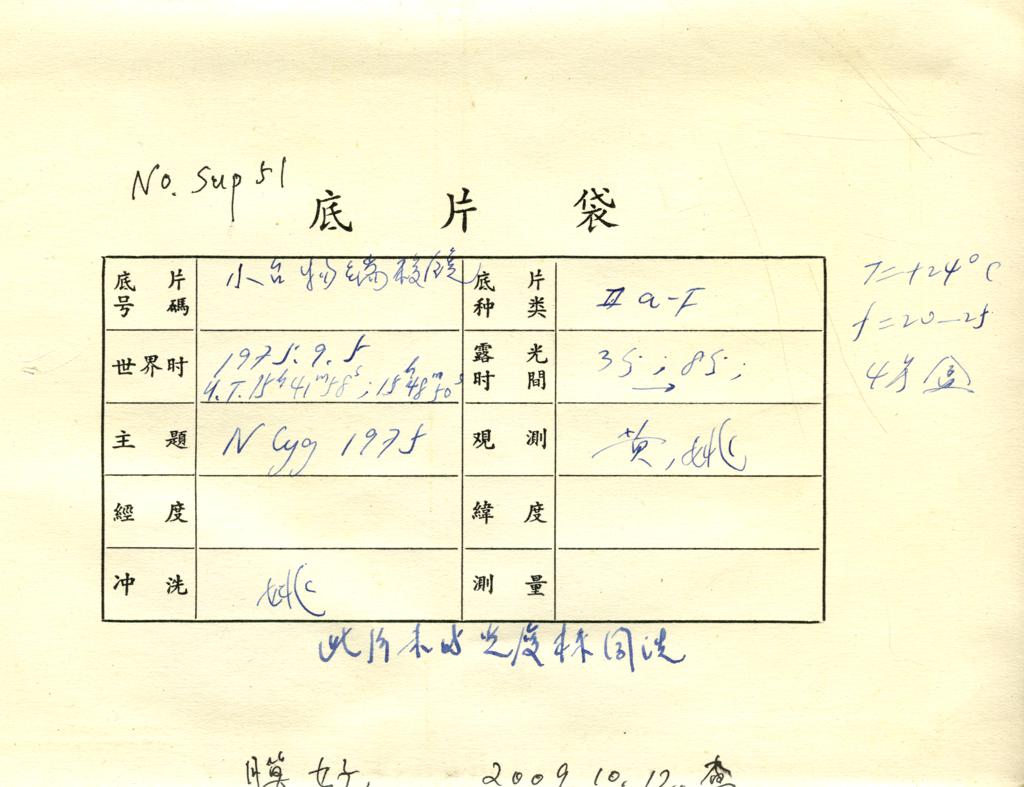 No. Sup 51
底片袋
底片号碼 小台物端棱鏡 底片种类 IIa-F
T=+24°C
f=20—25
世界时 1975. 9. 5 露光时間 3S; 8S;
U.T. 15h 41m 58s; 15h 48m 50s
4号盒
主題 N Cyg 1975 观測 黄, 姚
經度 緯度
冲洗 姚 測量
此片未与光度标同洗
膜好. 2009.10.12. 查